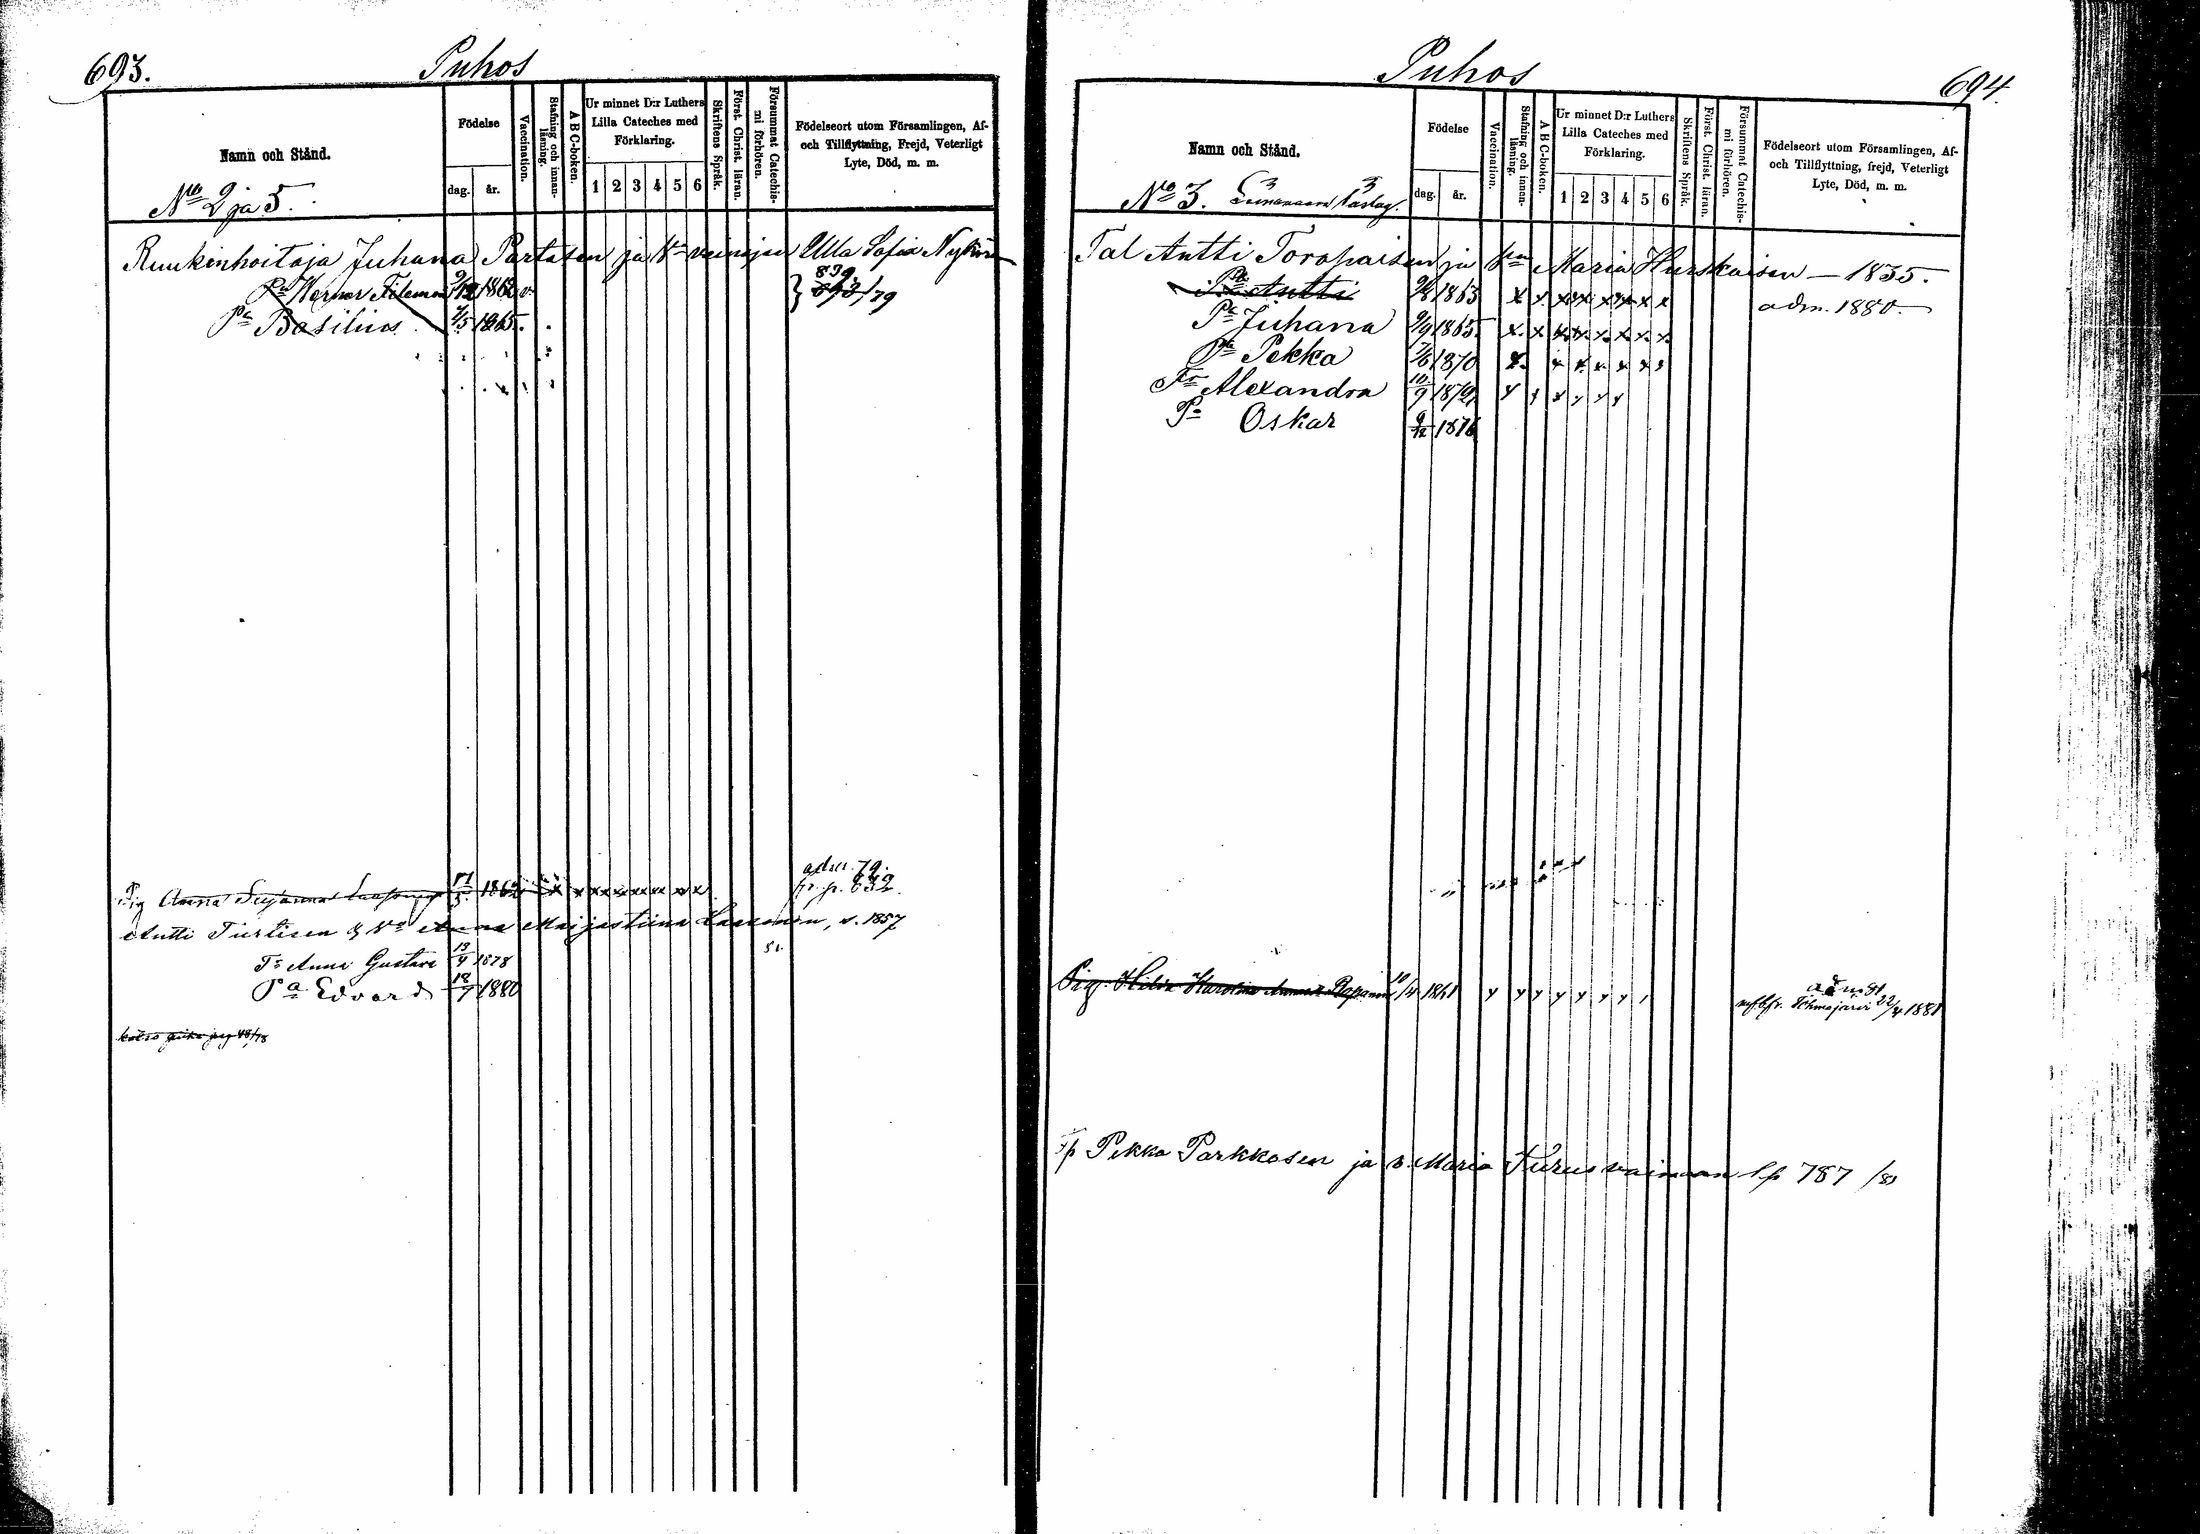 693.
Puhos
Namn och Stånd.
Födelse
dag.
år.
Vaccination.
Stafning och innanläsning.
A B C-boken.
Ur minnet D:r Luthers
Lilla Cateches med
Förklaring.
1 2 3 4 5 6
Skriftens Språk.
Först. Christ. läran.
Försummat Catechismi förhören.
Födelseort utom Församlingen, Af-
och Tillflyttning, Frejd, Veterligt
Lyte, Död, m. m.
No 2 ja 5.
Ruukinhoitaja Juhana Partasen ja Vn vainajan Ulla Sofia
Pa Werner Filemon 9/12 1862 v.
839.
/79
Pa Basilius 2/5 1865.
adm. 79.
Pig Anna Susanna 1862 x x x x x x x x x fr. p. 832.
Antti Tiertisen & Vo Anna Maijastiina Laasonen, s. 1857
Tr Anna Gustava 13/4 1878
Pa Edvard 18/7 1880
katso 48/78
Puhos
694.
Namn och Stånd.
Födelse
dag.
år.
Vaccination.
Stafning och innanläsning.
A B C-boken.
Ur minnet D:r Luthers
Lilla Cateches med
Förklaring.
1 2 3 4 5 6
Skriftens Språk.
Först. Christ. läran.
Försummat Catechismi förhören.
Födelseort utom Församlingen, Af-
och Tillflyttning, frejd, Veterligt
Lyte, Död, m. m.
No 3.
Tal Antti Toropaisen ja Vn Maria Hurskaisen — 1835.
Pa Antti 9/8 1863 x x x x x x x x adm. 1880.
Pa Juhana 9/9 1865 x x x x x x x x
Pa Pekka 7/6 1870 x x x x x x
Tr Alexandra 10/9 1872
Pa Oskar 9/12 1876
Pig. Hilda Karolina 10/4 1861
Tohmajärvi 22/4 1881
Pekka Parkkosen ja v. Maria vaimon lp 787 /83